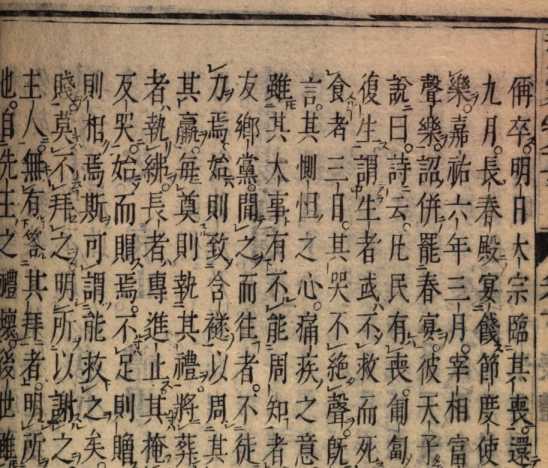 偁卒。明日太宗臨其喪。還
九月。長春殿宴餞節度使
樂。嘉祐六年三月。宰相富
聲樂。詔併罷春宴。彼天子
說曰。詩云。凡民有喪。匍匐
復生。謂生者或不救而死
食者三日。其哭不絕聲。既
言。其惻怛之心。痛疾之意
雖其大事有不能周知者
友鄉黨。聞之而往者。不徒
力焉。始則致含襚以周其
其羸。每奠則執其禮。將葬
者執紼。長者專進止。其掩
反哭。始而賵焉。不足則贈
則相焉。斯可謂能救之矣。
時莫不拜之。明所以謝之
主人。無有答其拜者。明所
也。自先王之禮壞。後世雖